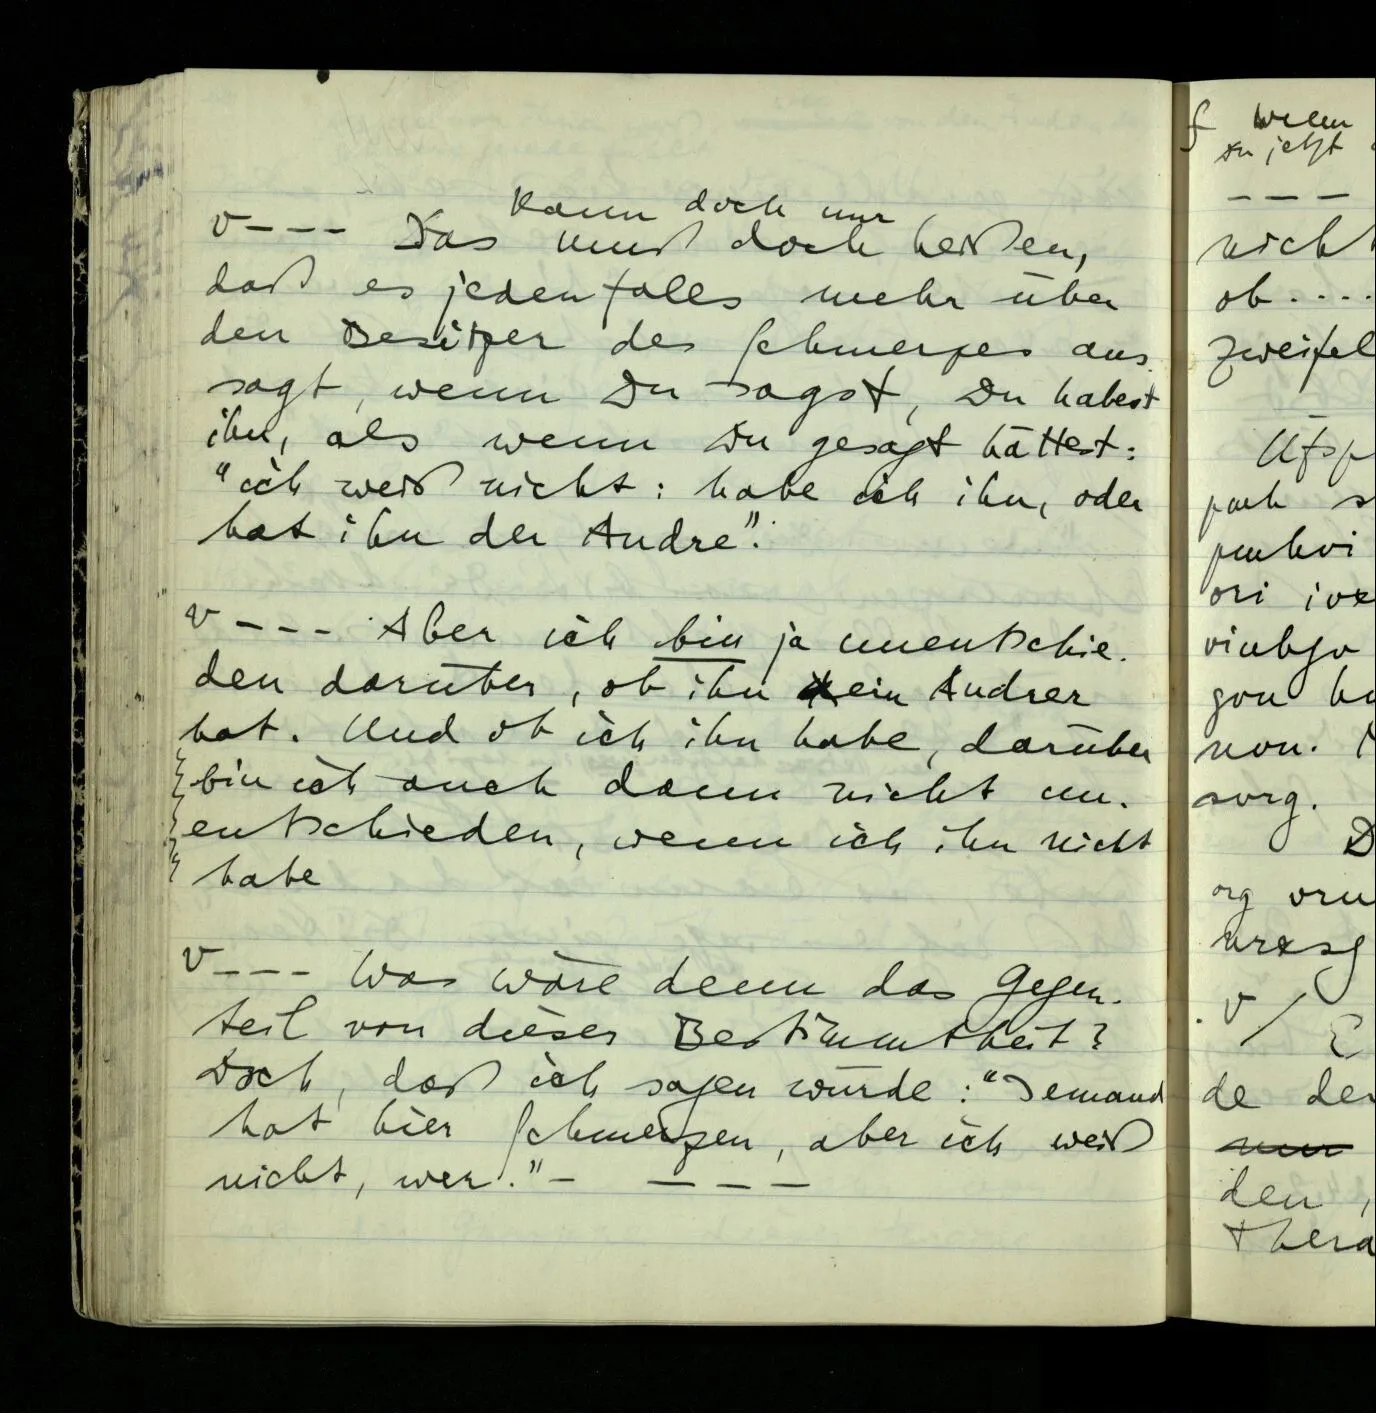 kann doch nur
v--- Das muß doch heißen,
daß es jedenfalls mehr über
den Besitzer des Schmerzes aus-
sagt, wenn Du sagst, Du habest
ihn, als wenn Du gesagt hättest:
"ich weiß nicht: habe ich ihn, oder
hat ihn der Andre".
v--- Aber ich bin ja unentschie-
den darüber, ob ihn ein Andrer
hat. Und ob ich ihn habe, darüber
bin ich auch dann nicht un-
entschieden, wenn ich ihn nicht
habe
v--- Was wäre denn das Gegen-
teil von dieser Bestimmtheit?
Doch, daß ich sagen würde: "Jemand
hat hier Schmerzen, aber ich weiß
nicht, wer." – – – – –
f wenn
Du jetzt
– – –
nicht
ob ....
zweifel
ori
gon
non.
sorg.
D
org
v /
de der
nur
den,